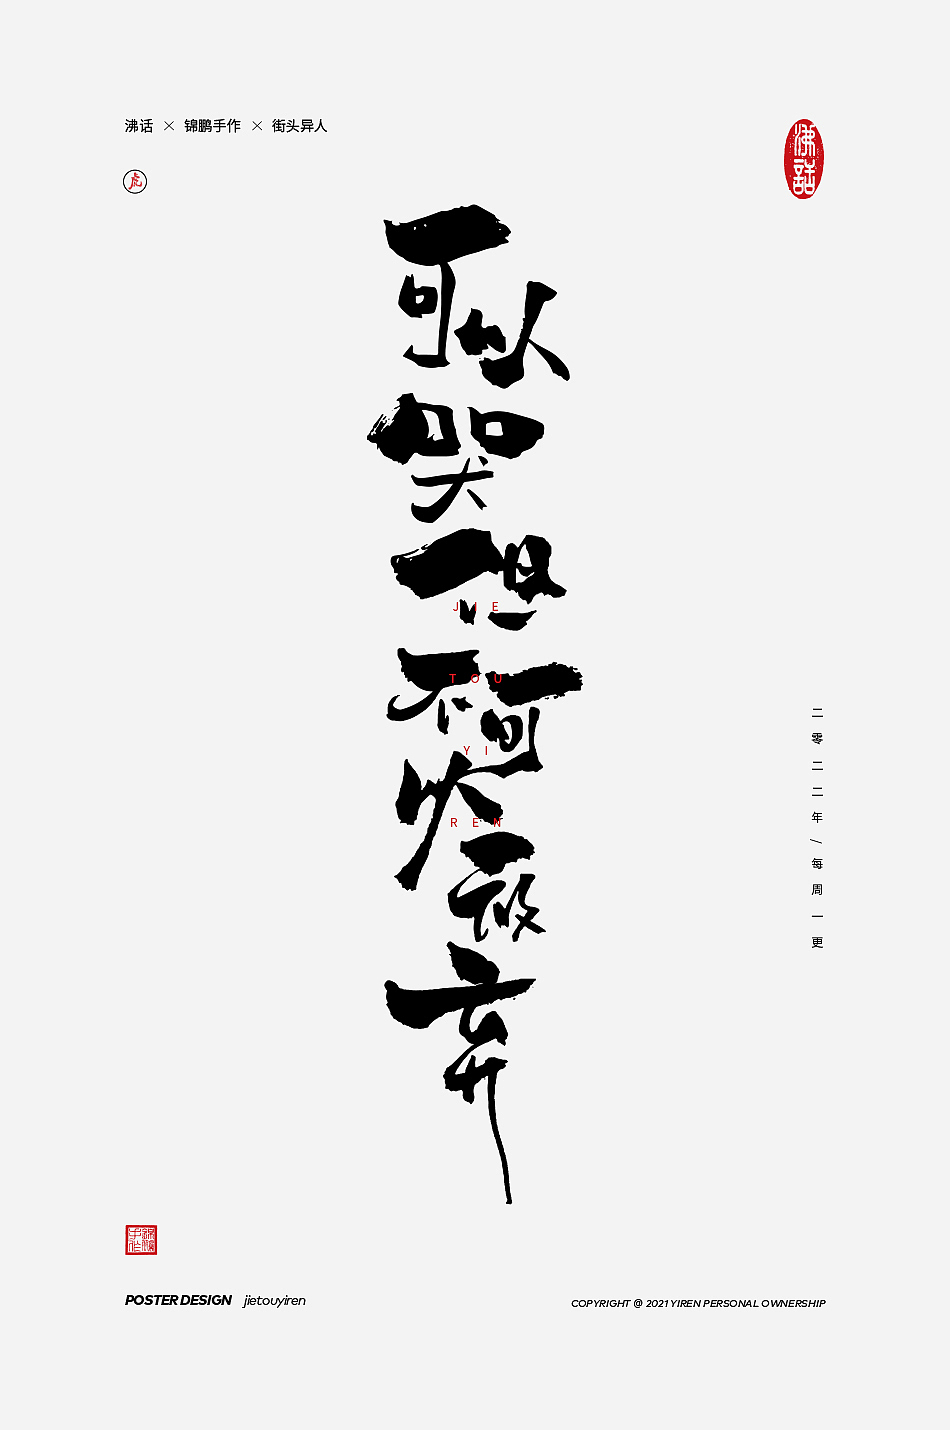 沸话 × 锦鹏手作 × 街头异人
虎
沸話
可以哭但不可以放弃
JIE
TOU
YI
REN
二零二二年/每周一更
POSTER DESIGN jietouyiren
COPYRIGHT @ 2021 YIREN PERSONAL OWNERSHIP